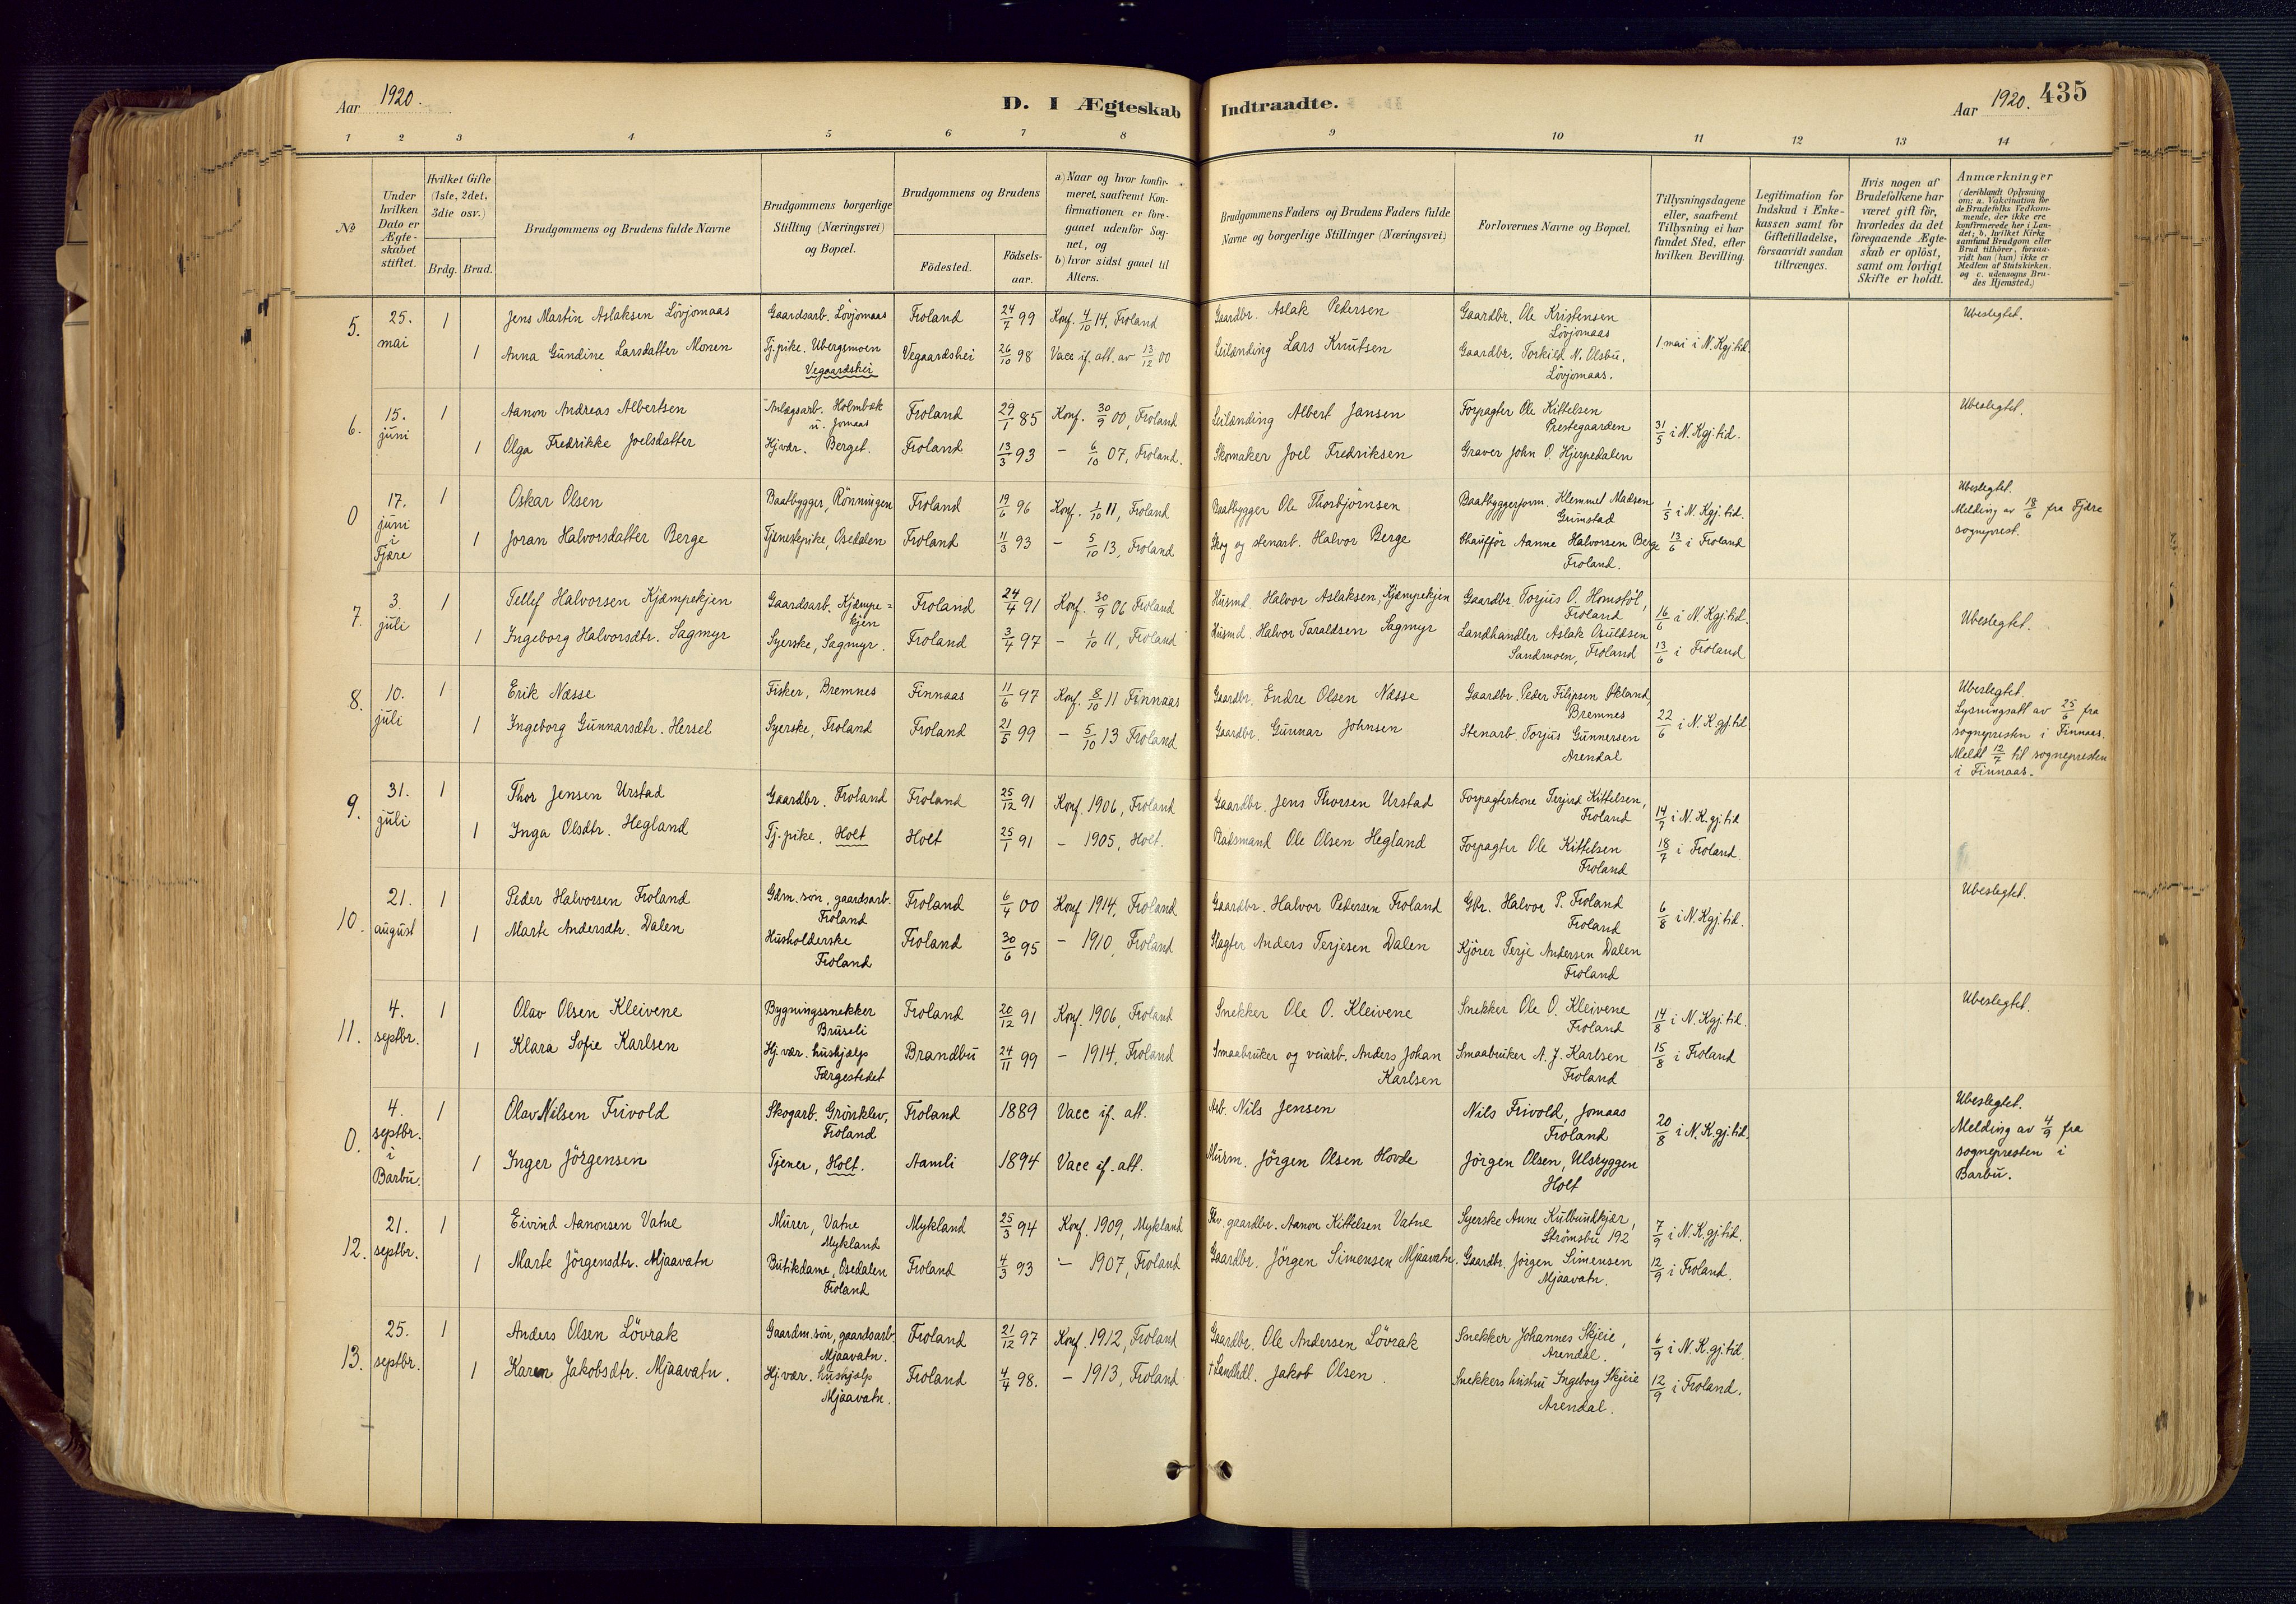 Aar 1920.
D. I Ægteskab Indtraadte.
Aar 1920. 435
1 2 3 4 5 6 7 8 9 10 11 12 13 14
No
Under hvilken Dato er Ægte-skabet stiftet.
Hvilket Gifte (1ste, 2det, 3die osv.)
Brdg. Brud.
Brudgommens og Brudens fulde Navne
Brudgommens borgerlige Stilling (Næringsvei) og Bopæl.
Brudgommens og Brudens
Födested. Födsels-aar.
a) Naar og hvor konfir-meret, saafremt Kon-firmationen er fore-gaaet udenfor Sog-net, og
b) hvor sidst gaaet til Alters.
Brudgommens Faders og Brudens Faders fulde Navne og borgerlige Stillinger (Næringsvei)
Forlovernes Navne og Bopæl.
Tillysningsdagene eller, saafremt Tillysning ei har fundet Sted, efter hvilken Bevilling.
Legitimation for Indskud i Enke-kassen samt for Giftetilladelse, forsaavidt saadan tiltrænges.
Hvis nogen af Brudefolkene har været gift för, hvorledes da det foregaaende Ægte-skab er oplöst, samt om lovligt Skifte er holdt.
Anmærkninger (deriblandt Oplysning om: a. Vakcination for de Brudefolks Vedkom-mende, der ikke ere konfirmerede her i Lan-det; b. hvilket Kirke samfund Brudgom eller Brud tilhörer, forsaa-vidt han (hun) ikke er Medlem af Statskirken, og c. udensogns Bru-des Hjemsted.)
5. 25. mai 1 Jens Martin Aslaksen Lövjomaas Gaardsarb. Lövjomaas Froland 24/7 99 Konf. 4/10 14, Froland Gaardbr. Aslak Pedersen Gaardbr. Ole Kristensen Lövjomaas 1 mai i N. Kgj.tid Ubeslegtet.
1 Anna Gundine Larsdatter Monen Tj.pike. Ubergsmoen Vegaardshei Vegaardshei 26/10 98 Vacc if. att. av 13/12 00 Leilænding Lars Knutsen Gaardbr. Torkild N. Olsbu, Lövjomaas.
6. 15. juni 1 Aanon Andreas Albertsen Anlægsarb. Holmbæk u. Jomaas Froland 29/1 85 Konf. 30/9 00, Froland Leilænding Albert Jansen Forpagter Ole Kittelsen Prestegaarden 31/5 i N. Kgj.tid. Ubeslegtet.
1 Olga Fredrikke Joelsdatter Hj.vær. Berget. Froland 13/3 93 - 6/10 07, Froland. Skomaker Joel Fredriksen Graver John O. Hjerpedalen
0 17. juni i Fjære 1 Oskar Olsen Baatbygger, Rönningen Froland 19/6 96 Konf. 1/10 11, Froland Baatbygger Ole Thorbjörnsen Baatbyggerform. Klemmet Madsen Grimstad 1/5 i N. Kgj.tid. Ubeslegtet. Melding av 18/6 fra Fjære sogneprest.
1 Joran Halvorsdatter Berge Tjenestepike, Osedalen Froland 11/3 93 - 5/10 13, Froland Skog og stenarb. Halvor Berge Chaufför Aanne Halvorsen Berge Froland. 13/6 i Froland
7. 3. juli 1 Tellef Halvorsen Kjæmpekjen Gaardsarb. Kjæmpe=kjen Froland 24/4 91 Konf. 30/9 06 Froland Husmd. Halvor Aslaksen, Kjæmpekjen Gaardbr. Torjus O. Homstöl, Froland 16/6 i N. Kgj.tid. Ubeslegtet.
1 Ingeborg Halvorsdtr. Sagmyr Syerske, Sagmyr. Froland 3/4 97 - 1/10 11, Froland Husmd. Halvor Taraldsen Sagmyr Landhandler Aslak Osuldsen Sandmoen, Froland 13/6 i Froland
8. 10. juli 1 Erik Næsse Fisker, Bremnes Finnaas 11/6 97 Konf. 8/10 11 Finnaas Gaardbr. Endre Olsen Næsse Gaardbr. Peder Filipsen Økland, Bremnes 22/6 i N. K.gj.tid Ubeslegtet. Lysningsatt av 25/6 fra sognepresten i Finnaas. Meldt 12/7 til sognepresten i Finnaas.
1 Ingeborg Gunnarsdtr. Hersel Syerske, Froland Froland 21/5 99 - 5/10 13 Froland Gaardbr. Gunnar Johnsen Stenarb. Torjus Gunnersen Arendal
9. 31. juli 1 Thor Jensen Urstad Gaardbr. Froland Froland 25/12 91 Konf. 1906, Froland Gaardbr. Jens Thorsen Urstad Forpagterkone Terjerd Kittelsen, Froland 14/7 i N. K.gj.tid
1 Inga Olsdtr. Hegland Tj.pike. Holt Holt 25/1 91 - 1905, Holt. Baadsmand Ole Olsen Hegland Forpagter Ole Kittelsen Froland 18/7 i Froland.
10. 21. august 1 Peder Halvorsen Froland Gdm.sön, gaardsarb. Froland Froland 6/4 00 Konf 1914, Froland Gaardbr. Halvor Pedersen Froland Gbr. Halvor P. Froland Froland 6/8 i N. Kgj.tid. Ubeslegtet.
1 Marte Andersdtr. Dalen Husholderske Froland Froland 30/6 95 - 1910, Froland Slagter Anders Terjesen Dalen Kjörer Terje Andersen Dalen Froland
11. 4. septbr. 1 Olav Olsen Kleivene Bygningssnekker Bruseli Froland 20/12 91 Konf. 1906, Froland Snekker Ole O. Kleivene Snekker Ole O. Kleivene Froland 14/8 i N. Kgj.tid. Ubeslegtet.
1 Klara Sofie Karlsen Hj.vær. hushjælp Færgestedet Brandbu 24/11 99 - 1914, Froland Smaabruker og veiarb. Anders Johan Karlsen Smaabruker A. J. Karlsen Froland 15/8 i Froland
0. 4. septbr. i Barbu. 1 Olav Nilsen Frivold Skogarb. Grönklev, Froland Froland 1889 Vacc if. att. Arb. Nils Jensen Nils Frivold, Jomaas Froland 20/8 i N. K.gj.tid. Ubeslegtet. Melding av 4/9 fra sognepresten i Barbu.
1 Inger Jörgensen Tjener, Holt. Aamli 1894 Vacc if. att. Murm. Jörgen Olsen Hovde Jörgen Olsen, Ulsryggen Holt
12. 21. septbr. 1 Eivind Aanonsen Vatne Murer, Vatne Mykland Mykland 25/3 94 Konf. 1909, Mykland gaardbr. Aanon Kittelsen Vatne Syerske Anne Kulbundkjær, Strömsbu 192 7/9 i N. K.gj.tid.
1 Marte Jörgensdtr. Mjaavatn Butikdame, Osedalen Froland Froland 4/3 93 - 1907, Froland Gaardbr. Jörgen Simensen Mjaavatn. Gaardbr. Jörgen Simensen Mjaavatn. 12/9 i Froland.
13. 25. septbr. 1 Anders Olsen Lövrak Gaardm.sön, gaardsarb. Mjaavatn. Froland 21/12 97 Konf. 1912, Froland Gaardbr. Ole Andersen Lövrak Snekker Johannes Skjeie, Arendal. 6/9 i N. K.gj.tid.
1 Karen Jakobsdtr. Mjaavatn. Hj.vær. hushjælp Mjaavatn. Froland 4/4 98. - 1913, Froland † Landhdl. Jakob Olsen. Snekkers hustru Ingeborg Skjeie Arendal. 12/9 i Froland.